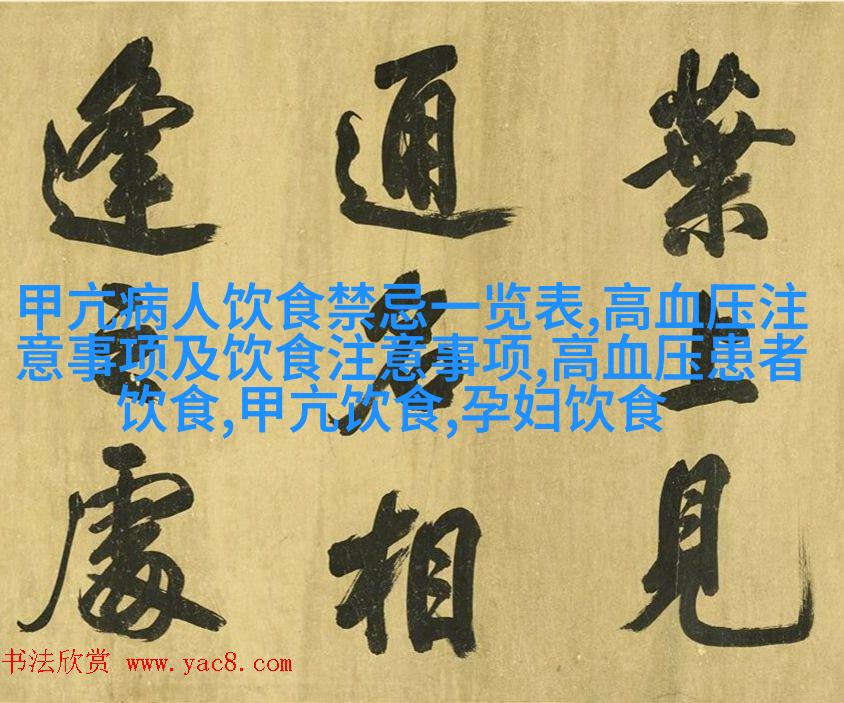 葉上見
通
相
逢
處
甲亢病人饮食禁忌一览表,高血压注
意事项及饮食注意事项,高血压患者
饮食,甲亢饮食,孕妇饮食
书法欣赏 www.yac8.com